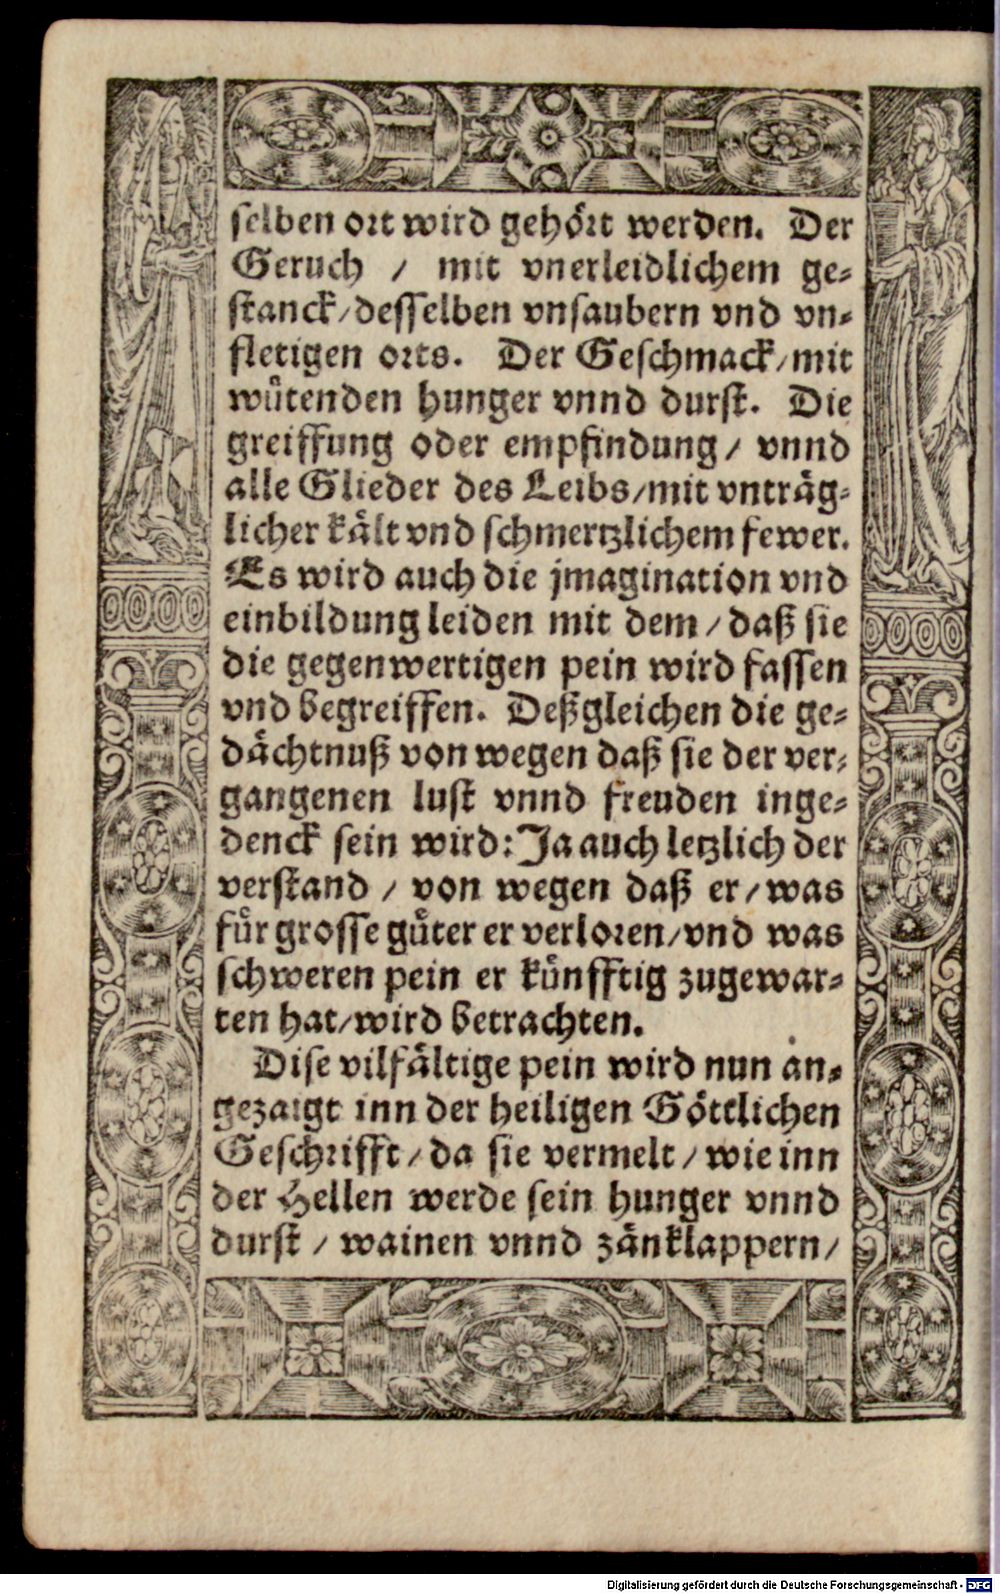 selben ort wird gehört werden. Der
Geruch / mit vnerleidlichem ge-
stanck/desselben vnsaubern vnd vn-
fletigen orts. Der Geschmack/mit
wütenden hunger vnnd durst. Die
greiffung oder empfindung/ vnnd
alle Glieder des Leibs/mit vnträg-
licher kält vnd schmertzlichem fewer.
Es wird auch die jmagination vnd
einbildung leiden mit dem/daß sie
die gegenwertigen pein wird fassen
vnd begreiffen. Deßgleichen die ge-
dächtnuß von wegen daß sie der ver-
gangenen lust vnnd freuden inge-
denck sein wird: Ja auch letzlich der
verstand / von wegen daß er/was
für grosse güter er verloren/vnd was
schweren pein er künfftig zugewar-
ten hat/wird betrachten.
Dise vilfältige pein wird nun an-
gezaigt inn der heiligen Göttlichen
Geschrifft/da sie vermelt/wie inn
der Hellen werde sein hunger vnnd
durst / wainen vnnd zänklappern/
Digitalisierung gefördert durch die Deutsche Forschungsgemeinschaft - DFG